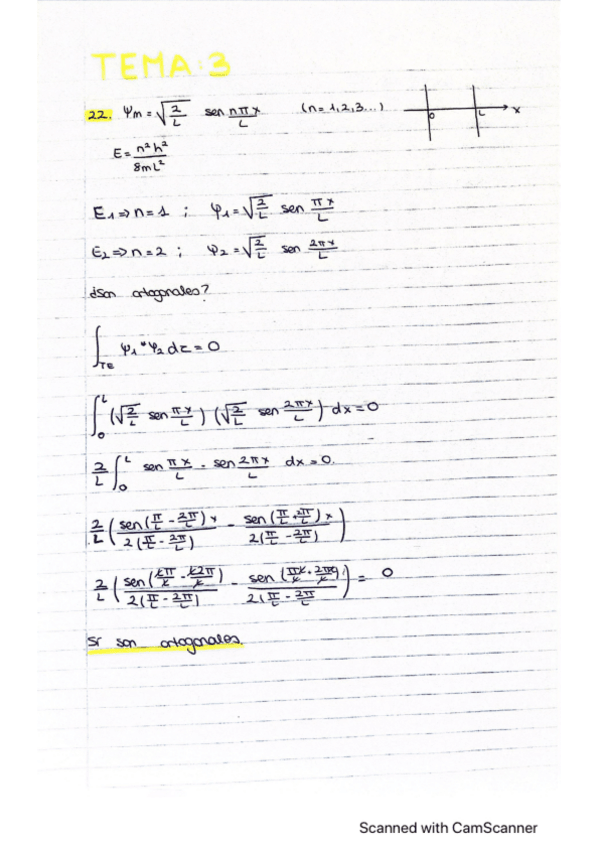 TEMA: 3
22. Ψm = √(2/L) sen nπx/L (n = 1, 2, 3...)
0 L x
E = n²h²/8mL²
E1 ⇒ n = 1 ; Ψ1 = √(2/L) sen πx/L
E2 ⇒ n = 2 ; Ψ2 = √(2/L) sen 2πx/L
¿Son ortogonales?
∫TE Ψ1* Ψ2 dτ = 0
∫0^L (√(2/L) sen πx/L) (√(2/L) sen 2πx/L) dx = 0
2/L ∫0^L sen πx/L - sen 2πx/L dx = 0.
2/L ( sen(π/L - 2π/L)x / 2(π/L - 2π/L) - sen(π/L + 2π/L)x / 2(π/L - 2π/L) )
2/L ( sen(Lπ/L - L2π/L) / 2(π/L - 2π/L) - sen(πL/L + 2πL/L) / 2(π/L - 2π/L) ) = 0
Sí son ortogonales.
Scanned with CamScanner